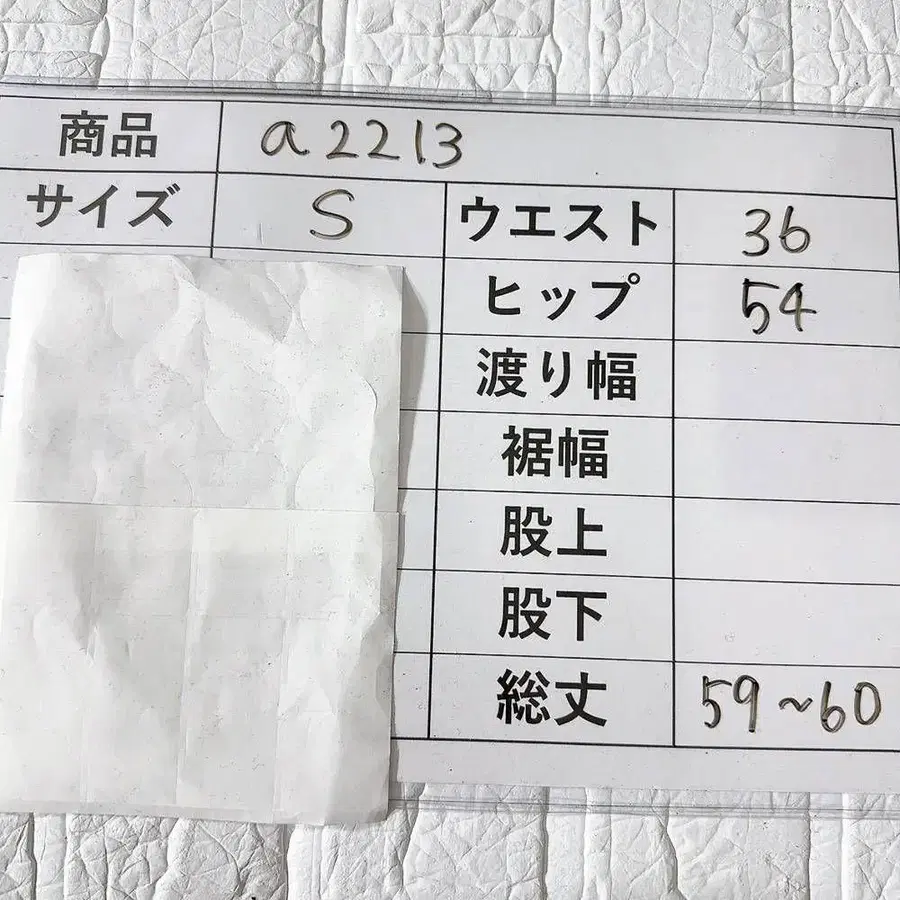 商品 a2213
サイズ S ウエスト 36
ヒップ 54
渡り幅
裾幅
股上
股下
総丈 59~60